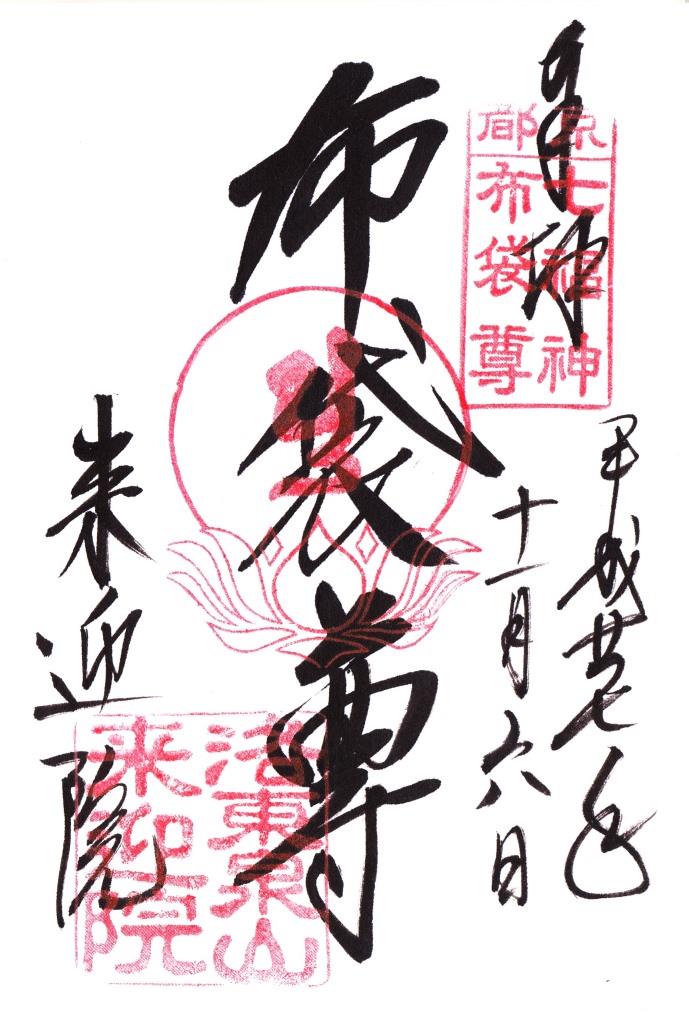 奉拝
京都
七福神
布袋尊
平成廿七年
十一月六日
布袋尊
来迎院
洛東泉山
来迎院